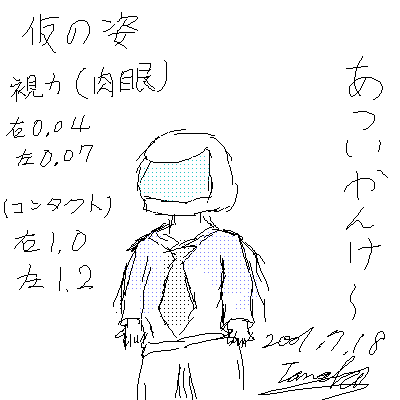 仮の姿
視力(肉眼)
右0.04
左0.07
(コンタクト)
右1.0
左1.2
あついかんけ〜
2001.7.18
Tanaka